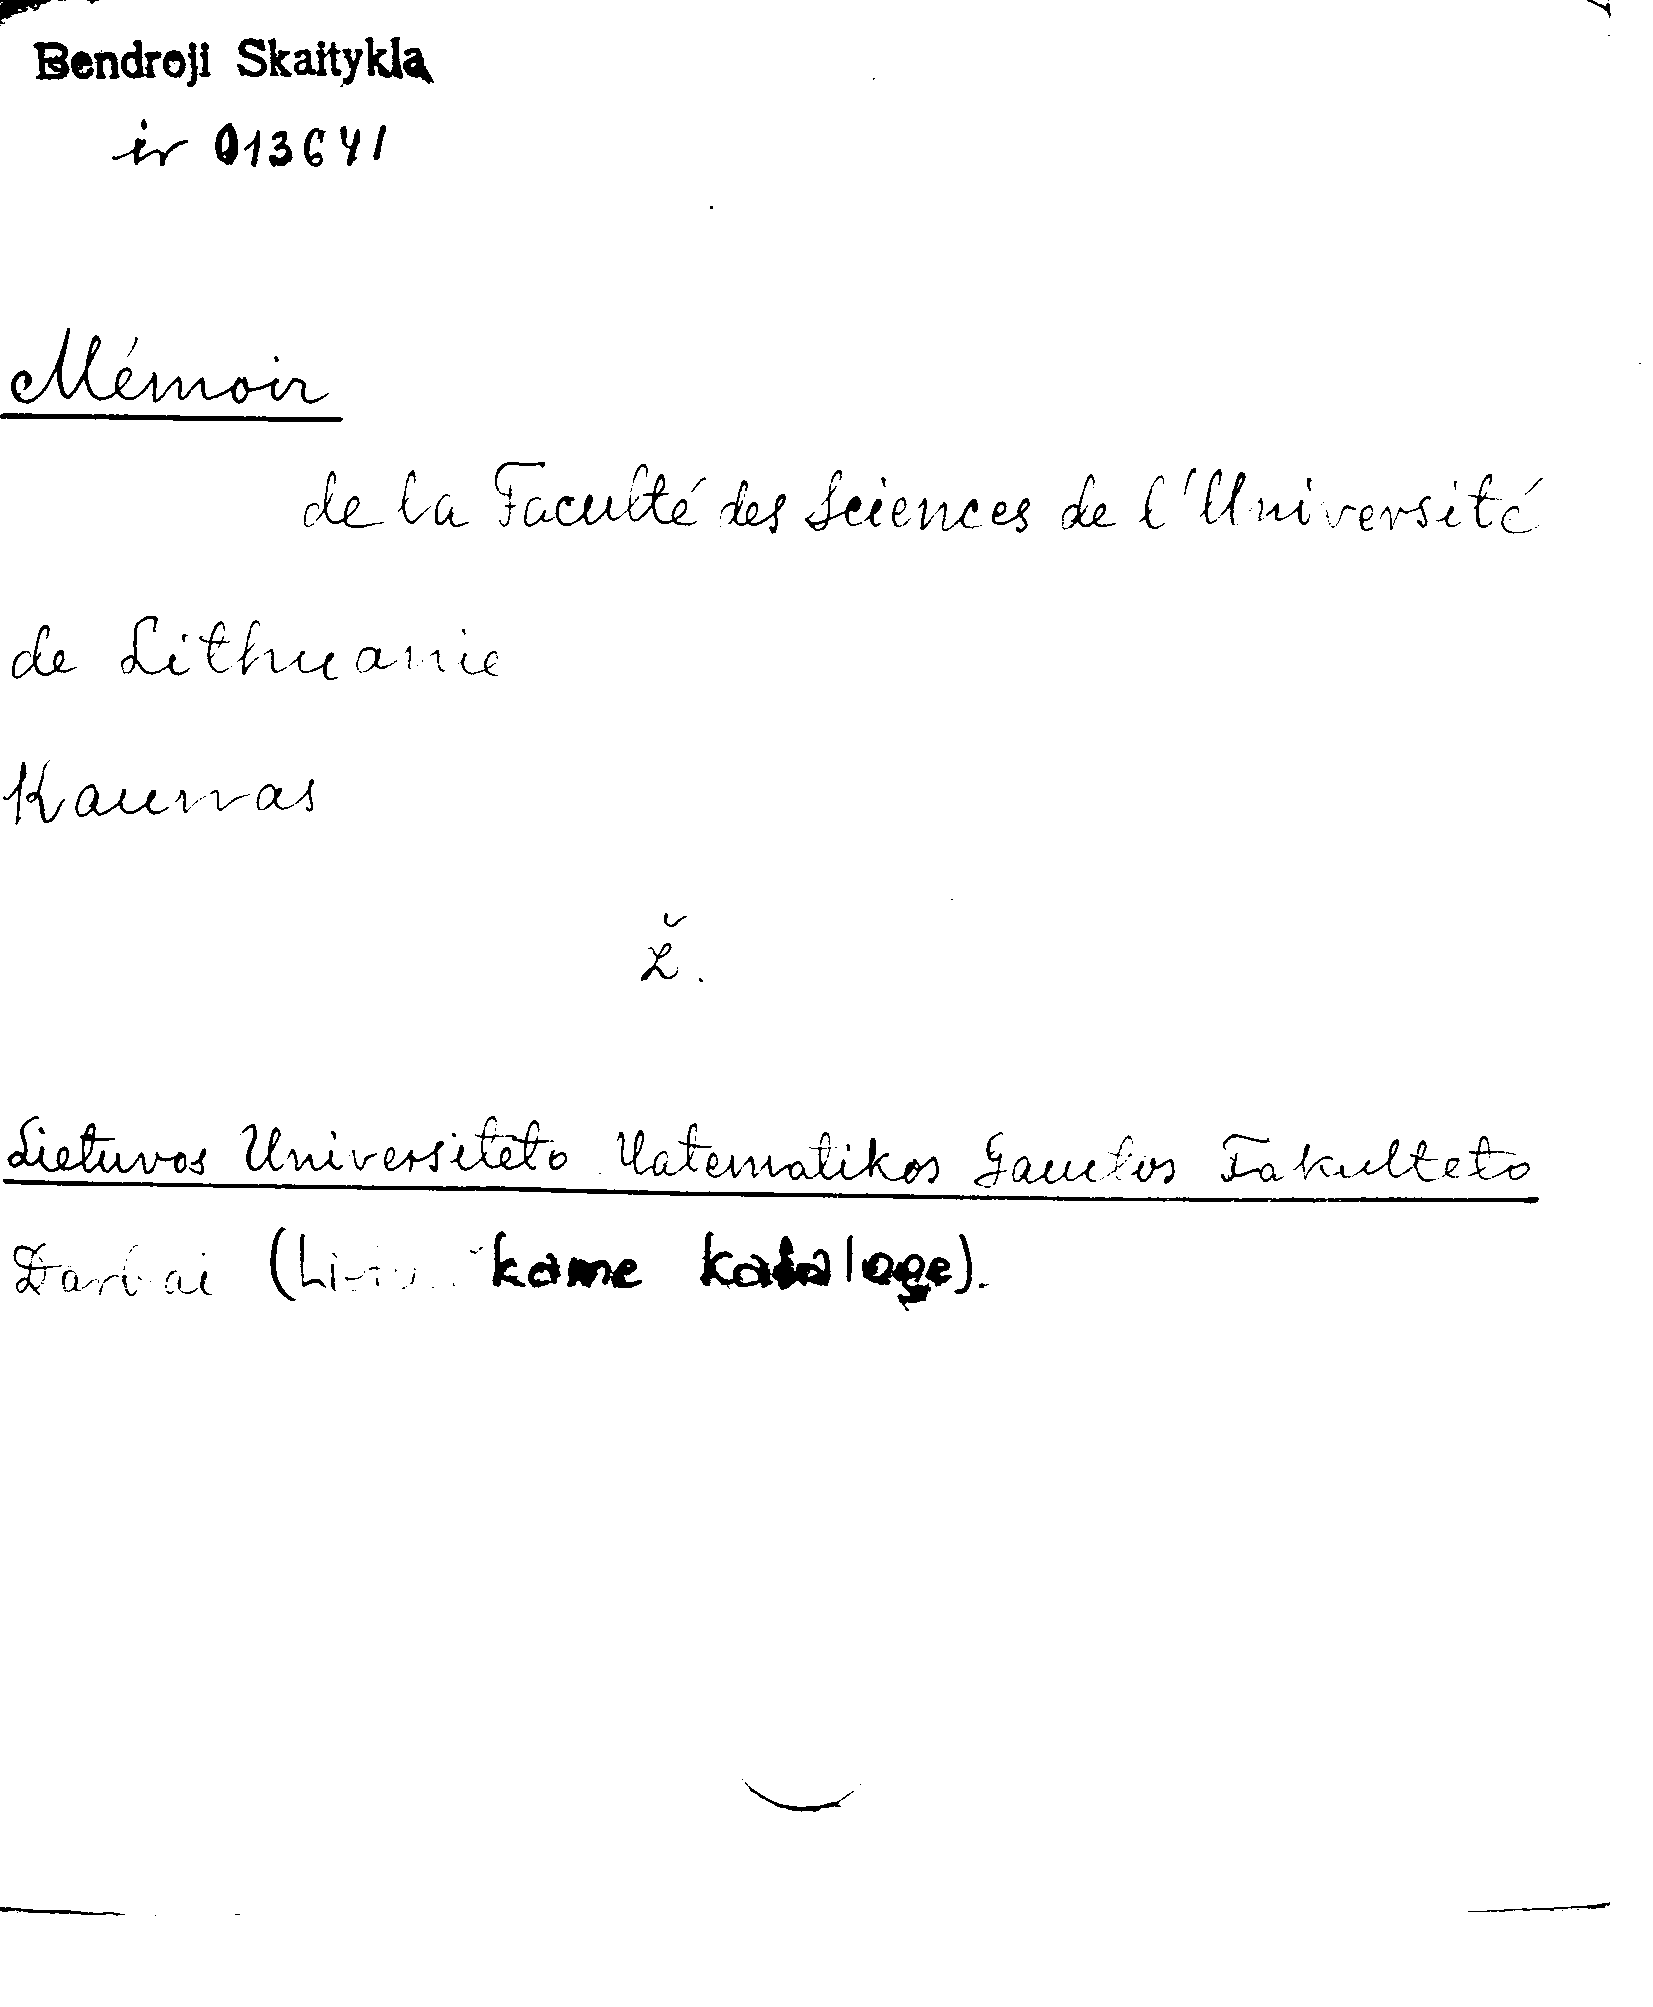 Bendroji Skaitykla
ir 013641
Mémoir
de la Faculté des Sciences de l'Université
de Lithuanie
Kaunas
Ž.
Lietuvos Universiteto Matematikos Gamtos Fakulteto
Darbai kame kataloge).